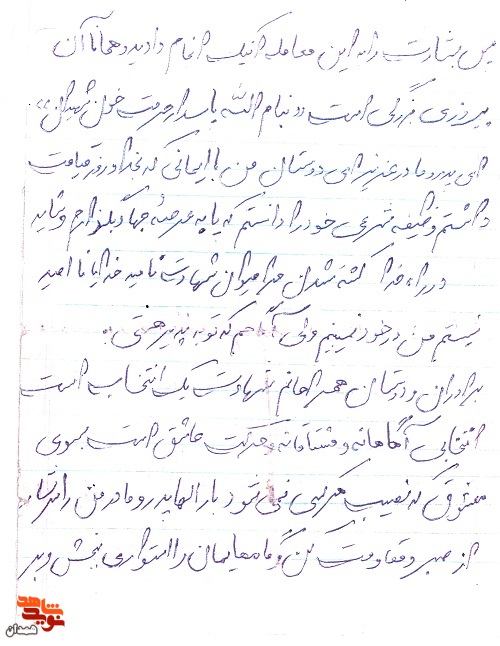 پس بشارت را به این معامله که نیک انجام دادید و همانا آن
پیروزی بزرگی است «به نام الله پاسدار حرمت خون شهیدان»
ای پدر و مادر عزیزم ای دوستان من با ایمانی که به خدا و روز قیامت
داشتم وظیفه شرعی خود را دانستم که پا به عرصه جهاد بگذارم و شاید
در راه خدا کشته شدن مرا میتوان شهادت نامید خدایا نا امید
نیستم من در خود نمیبینم ولی آگاهم که توبه پذیر هستی
برادران و دوستان همراهانم شهادت یک انتخاب است
انتخابی آگاهانه و مشتاقانه و حرکت عاشق است بسوی
معشوقی که نصیب هر کسی نمی شود بار الها پدر و مادر من را سرشار
از صبر و مقاومت کن و گامهایمان را استواری بخش و بر
نوید شاهد
همدان